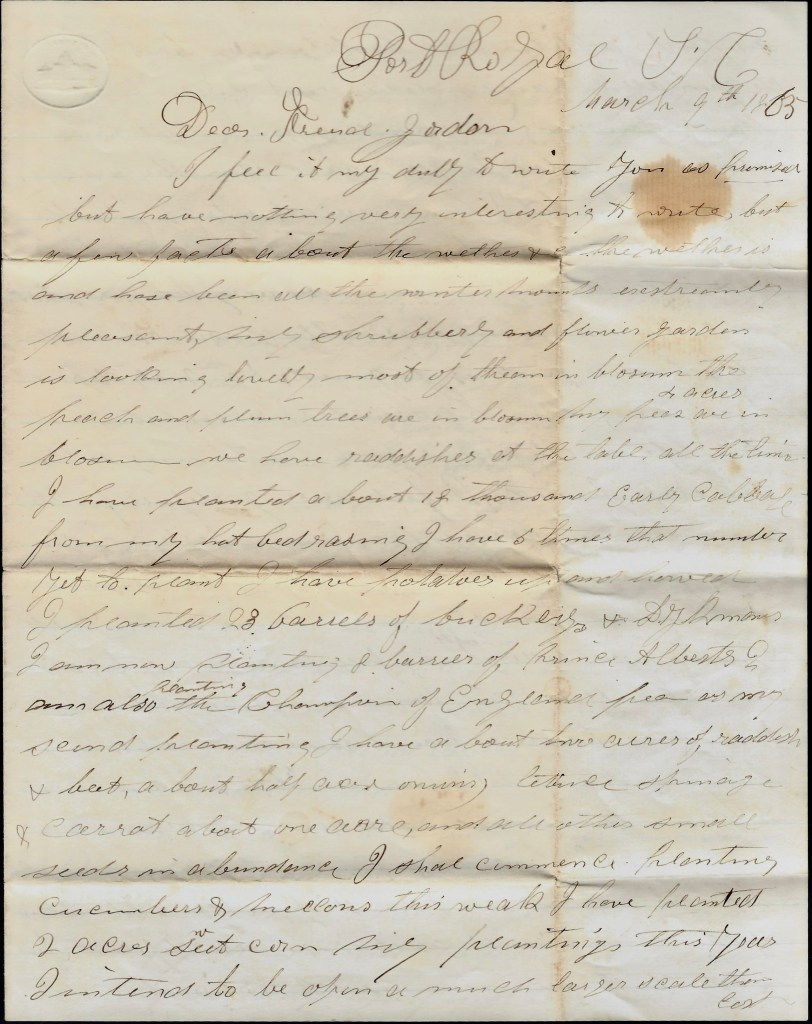 Port Royal S. C.
March 9th 1865
Dear. Friend. Jordon
I feel it my duty to write you as promised
but have nothing very interesting to write, but
a few facts a bout the wether & c the wether is
and have been all the winter mounts extreamly
pleasant, my shrubbery and flower garden
is looking lovely most of theam in blosum the
peach and plum trees are in blosum my peas 2 acres are in
blosum we have raddishes at the table, all the time
I have planted a bout 18 thousand Early Cabbage
from my hot bed rasing I have 5 times that number
yet to. plant I have potatoes up and howed
I planted 23 barrels of buckeys, &
I am now planting 8 barriers of Prince Alberts I
am also planting the Champion of England pea as my
scond planting I have a bout two acres of raddish
& beet, a bout half acre onions, letuce spinage
& Carrot about one acre, and all other small
seeds in abundance I shal commence. planting
Cucumbers & mellons this weak I have planted
2 acres sweet corn my plantings this year
I intend to be opon a much larger scale then